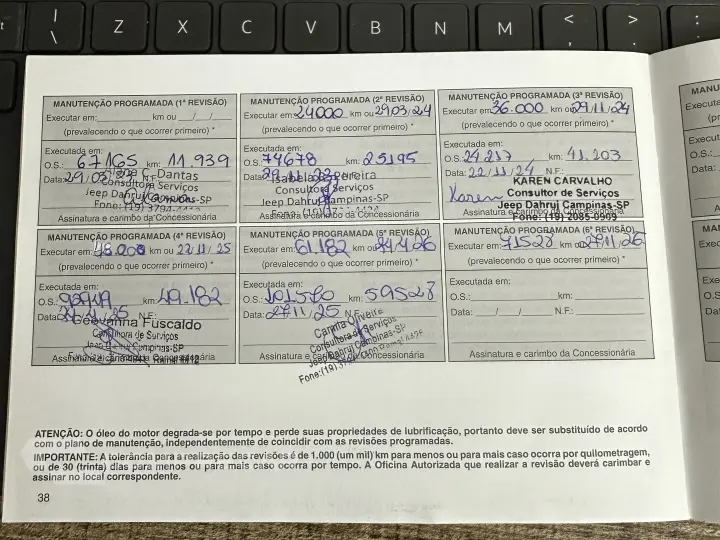 \ | Z X C V B N M < , > . :
MANUTENÇÃO PROGRAMADA (1ª REVISÃO)
Executar em: km ou __/__/__
(prevalecendo o que ocorrer primeiro) *
Executada em:
O.S.: 67165 km: 11.939
Data: 29/03/ N.F.:
C. Dantas
Consultora Serviços
Jeep Dahruj Campinas-SP
Fone: (19) 3794-
Assinatura e carimbo da Concessionária
MANUTENÇÃO PROGRAMADA (2ª REVISÃO)
Executar em: 24000 km ou 29/03/24
(prevalecendo o que ocorrer primeiro) *
Executada em:
O.S.: 74678 km: 25195
Data: N.F.:
Isabela Pereira
Consultora Serviços
Jeep Dahruj Campinas-SP
Fone: (19)
Assinatura e carimbo da Concessionária
MANUTENÇÃO PROGRAMADA (3ª REVISÃO)
Executar em: 36.000 km ou 29/11/24
(prevalecendo o que ocorrer primeiro) *
Executada em:
O.S.: km: 41.203
Data: 22/11/24 N.F.:
KAREN CARVALHO
Karen Consultor de Serviços
Jeep Dahruj Campinas-SP
Assinatura e carimbo da Concessionária
Fone: (19) 2085-0909
MANUTENÇÃO PROGRAMADA (4ª REVISÃO)
Executar em: 48.000 km ou 22/11/25
(prevalecendo o que ocorrer primeiro) *
Executada em:
O.S.: km: 49.182
Data: /25 N.F.:
Geovanna Fuscaldo
Consultora de Serviços
Jeep Dahruj Campinas-SP
Assinatura e carimbo da Concessionária
MANUTENÇÃO PROGRAMADA (5ª REVISÃO)
Executar em: 61.182 km ou /26
(prevalecendo o que ocorrer primeiro) *
Executada em:
O.S.: 101.580 km: 59528
Data: 27/11/25 N.F.:
Camila Oliveira
Consultora de Serviços
Jeep Dahruj Campinas-SP
Fone: (19)
Assinatura e carimbo da Concessionária
MANUTENÇÃO PROGRAMADA (6ª REVISÃO)
Executar em: 71528 km ou 27/11/26
(prevalecendo o que ocorrer primeiro) *
Executada em:
O.S.: km:
Data: __/__/__ N.F.:
Assinatura e carimbo da Concessionária
ATENÇÃO: O óleo do motor degrada-se por tempo e perde suas propriedades de lubrificação, portanto deve ser substituído de acordo
com o plano de manutenção, independentemente de coincidir com as revisões programadas.
IMPORTANTE: A tolerância para a realização das revisões é de 1.000 (um mil) km para menos ou para mais caso ocorra por quilometragem,
ou de 30 (trinta) dias para menos ou para mais caso ocorra por tempo. A Oficina Autorizada que realizar a revisão deverá carimbar e
assinar no local correspondente.
38